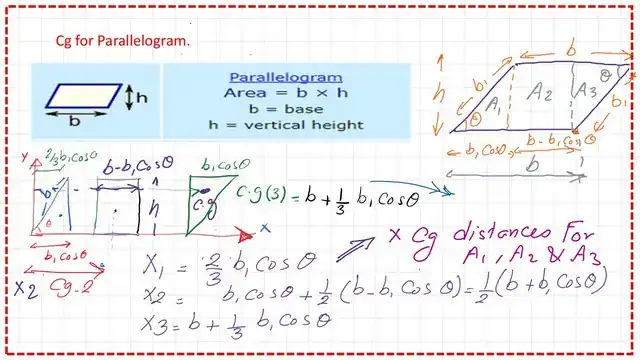 Cg for Parallelogram.
h
b
Parallelogram
Area = b × h
b = base
h = vertical height
b
h
b₁
A₁
A₂
A₃
θ
θ
b₁
b₁ cosθ
b - b₁ cosθ
b
Y
2/3 b₁ cosθ
b - b₁ cosθ
b₁ cosθ
b₁
θ
h
c.g
c.g(3) = b + 1/3 b₁ cosθ
X
b₁ cosθ
X2 Cg-2
x Cg distances For
A₁, A₂ & A₃
X₁ = 2/3 b₁ cosθ
X2 = b₁ cosθ + 1/2 (b - b₁ cosθ) = 1/2 (b + b₁ cosθ)
X3 = b + 1/3 b₁ cosθ